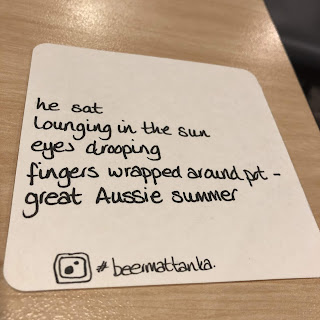 he sat
lounging in the sun
eyes drooping
fingers wrapped around pot -
great Aussie summer
# beermattanka.